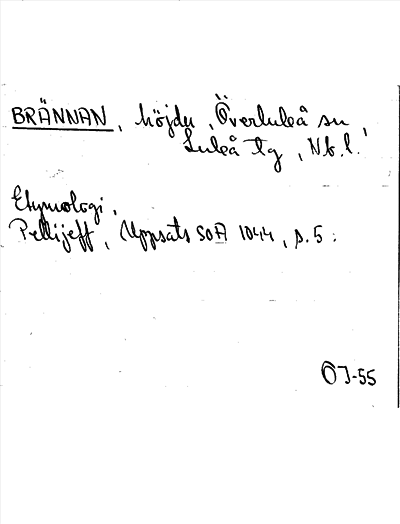 BRÄNNAN, höjdu, Överluleå sn,
Luleå tg, Nb. l.
Etymologi,
Pellijeff, Uppsats SOA 1044, s. 5:
OJ-55